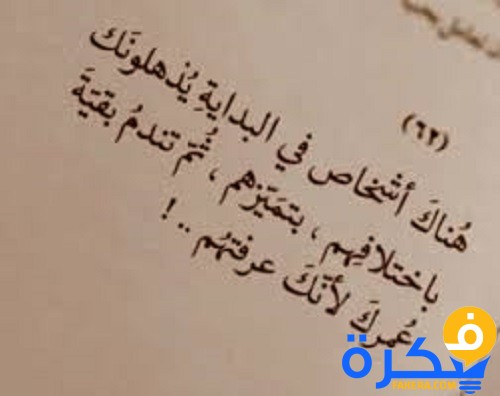 (٦٢)
هُناكَ أشخاص في البدايةِ يُذهلونَكَ
باختلافِهم ، بتَميّزهم ، ثُمّ تندمُ بقيّةَ
عُمركَ لأنّكَ عرفتهُم .. !
فكرة